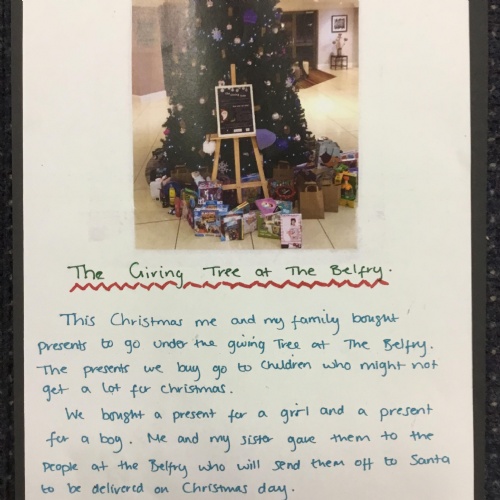 The Giving Tree at The Belfry.
This Christmas me and my family bought
presents to go under the giving Tree at The Belfry.
The presents we buy go to children who might not
get a lot for christmas.
We bought a present for a girl and a present
for a boy. Me and my sister gave them to the
people at the Belfry who will send them off to Santa
to be delivered on Christmas day.